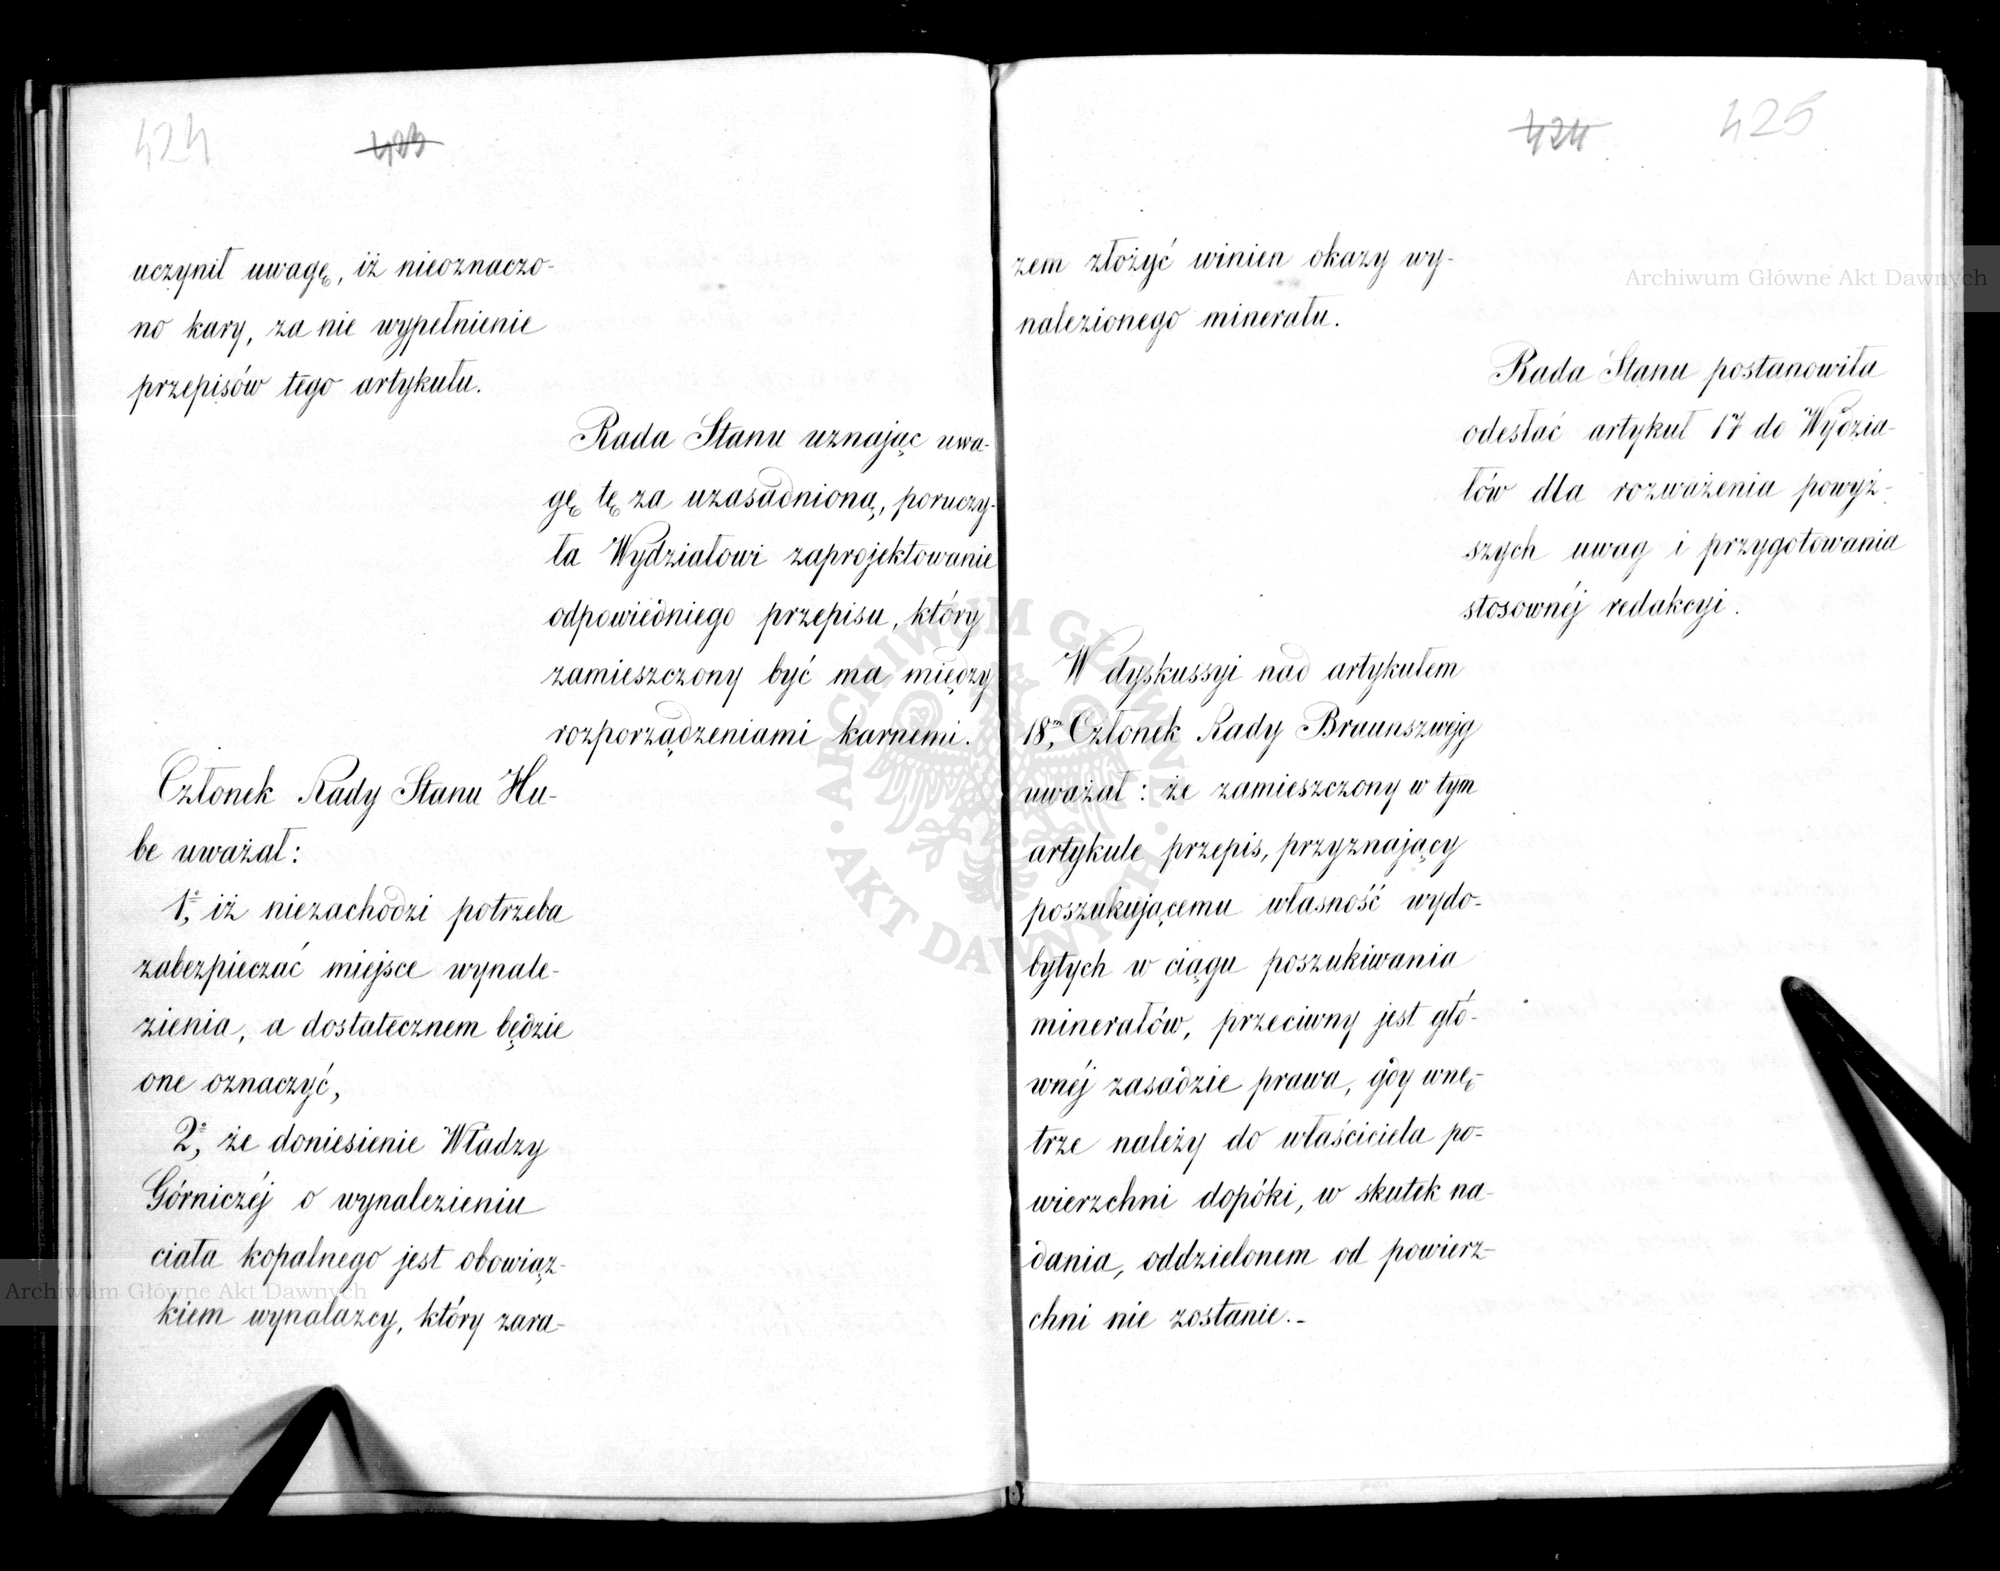 424
423
uczynił uwagę, iż nieoznaczo-
no kary, za nie wypełnienie
przepisów tego artykułu.
Rada Stanu uznając uwa-
gę tę za uzasadnioną, poruczy-
ła Wydziałowi zaprojektowanie
odpowiedniego przepisu, który
zamieszczony być ma między
rozporządzeniami karnemi.
Członek Rady Stanu Hu-
be uważał:
1°, iż niezachodzi potrzeba
zabezpieczać miejsce wynale-
zienia, a dostatecznem będzie
one oznaczyć,
2°, że doniesienie Władzy
Górniczéj o wynalezieniu
ciała kopalnego jest obowiąz-
kiem wynalazcy, który zara-
424
425
zem złożyć winien okazy wy-
nalezionego minerału.
Rada Stanu postanowiła
odesłać artykuł 17 do Wydzia-
łów dla rozważenia powyż-
szych uwag i przygotowania
stosownéj redakcyi.
W dyskussyi nad artykułem
18m, Członek Rady Braunszwejg
uważał: że zamieszczony w tym
artykule przepis, przyznający
poszukującemu własność wydo-
bytych w ciągu poszukiwania
minerałów, przeciwny jest głó-
wnéj zasadzie prawa, gdy wnę-
trze należy do właściciela po-
wierzchni dopóki, w skutek na-
dania, oddzielonem od powierz-
chni nie zostanie.-
Archiwum Główne Akt Dawnych
ARCHIWUM GŁÓWNE · AKT DAWNYCH ·
Archiwum Główne Akt Dawnych